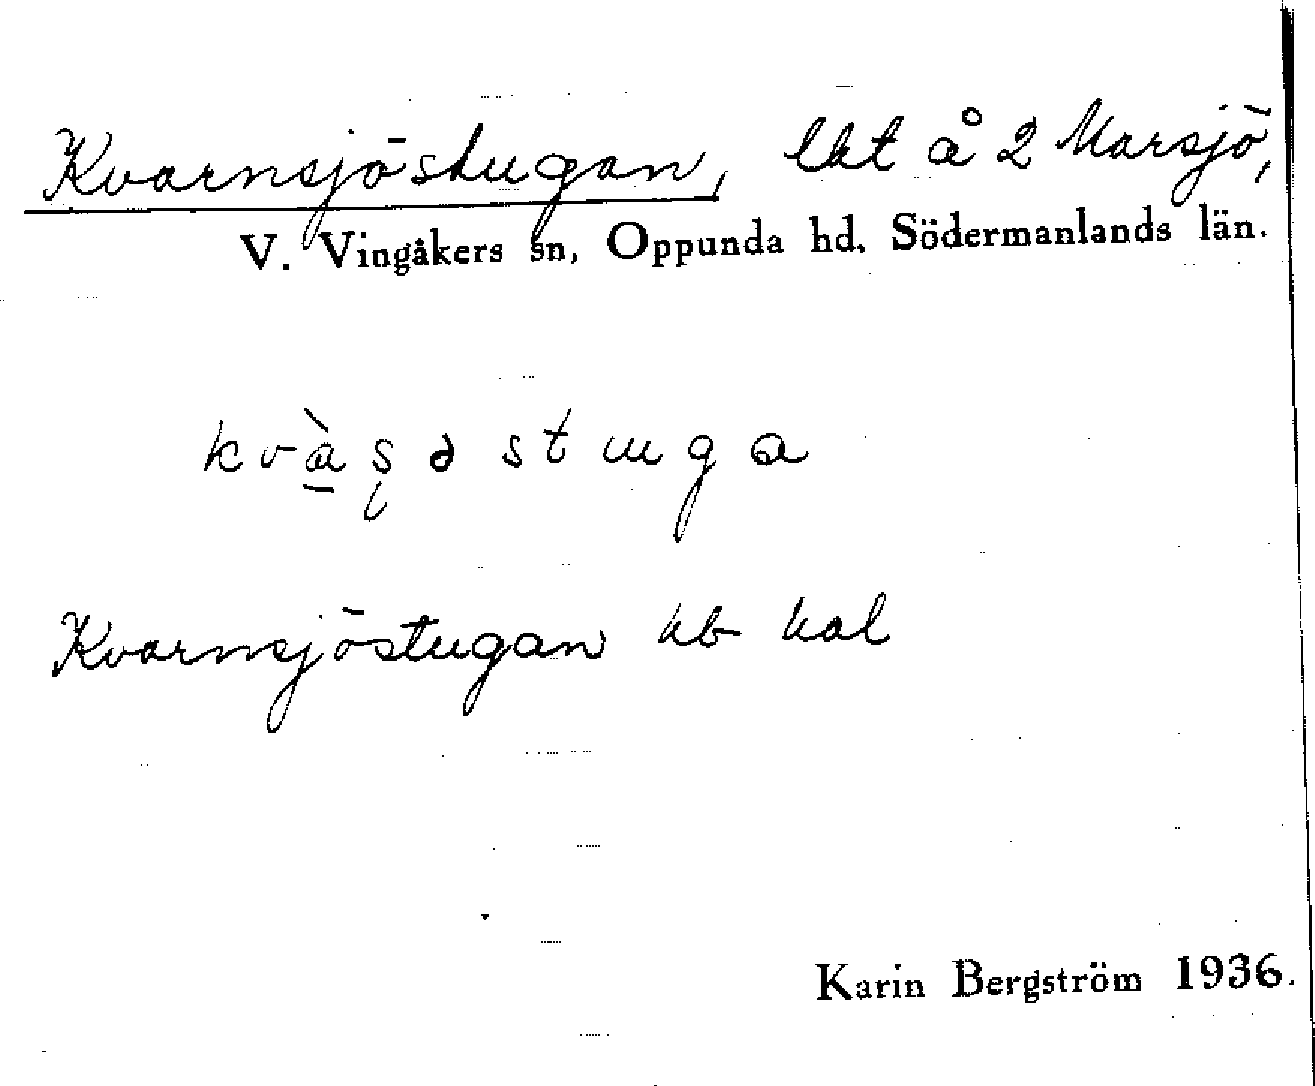 Kvarnsjöstugan, lht å 2 Marsjö,
V. Vingåkers sn, Oppunda hd. Södermanlands län.
kvàşəstuga
Kvarnsjöstugan hb kal
Karin Bergström 1936.